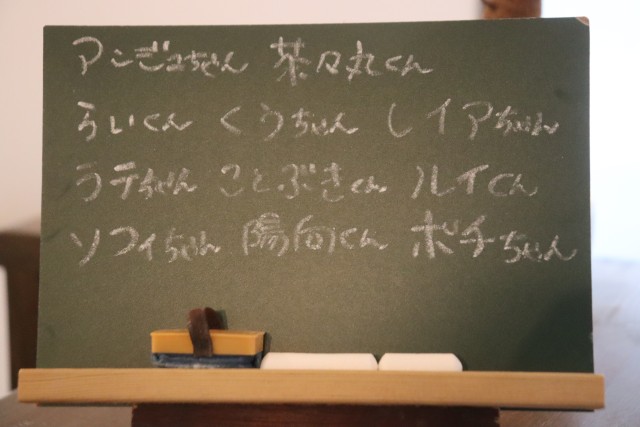 アンジュちゃん 茶々丸くん
らいくん くうちゃん レイアちゃん
ラテちゃん ことぶきくん ルイくん
ソフィちゃん 陽向くん ボチちゃん